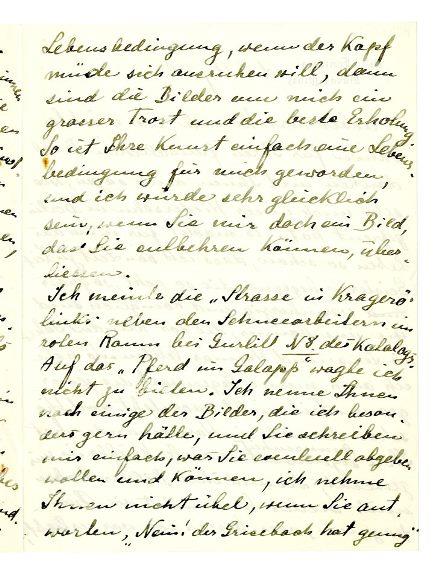 Lebensbedingung, wenn der Kopf
müde sich ausruhen will, dann
sind die Bilder um mich ein
grosser Trost und die beste Erholung.
So ist Ihre Kunst einfach eine Lebens-
bedingung für mich geworden,
und ich würde sehr glücklich
sein, wenn Sie mir doch ein Bild,
das Sie entbehren können, über-
liessen.
Ich meinte die „Strasse in Kragerö"
links neben den Schneearbeitern im
roten Raum bei Gurlitt N8 des Katalogs.
Auf das „Pferd im Galopp" wagte ich
nicht zu bieten. Ich nenne Ihnen
noch einige der Bilder, die ich beson-
ders gern hätte, und Sie schreiben
mir einfach, was Sie eventuell abgeben
wollen und können, ich nehme
Ihnen nicht übel, wenn Sie ant-
worten, „Nein! der Grisebach hat genug"